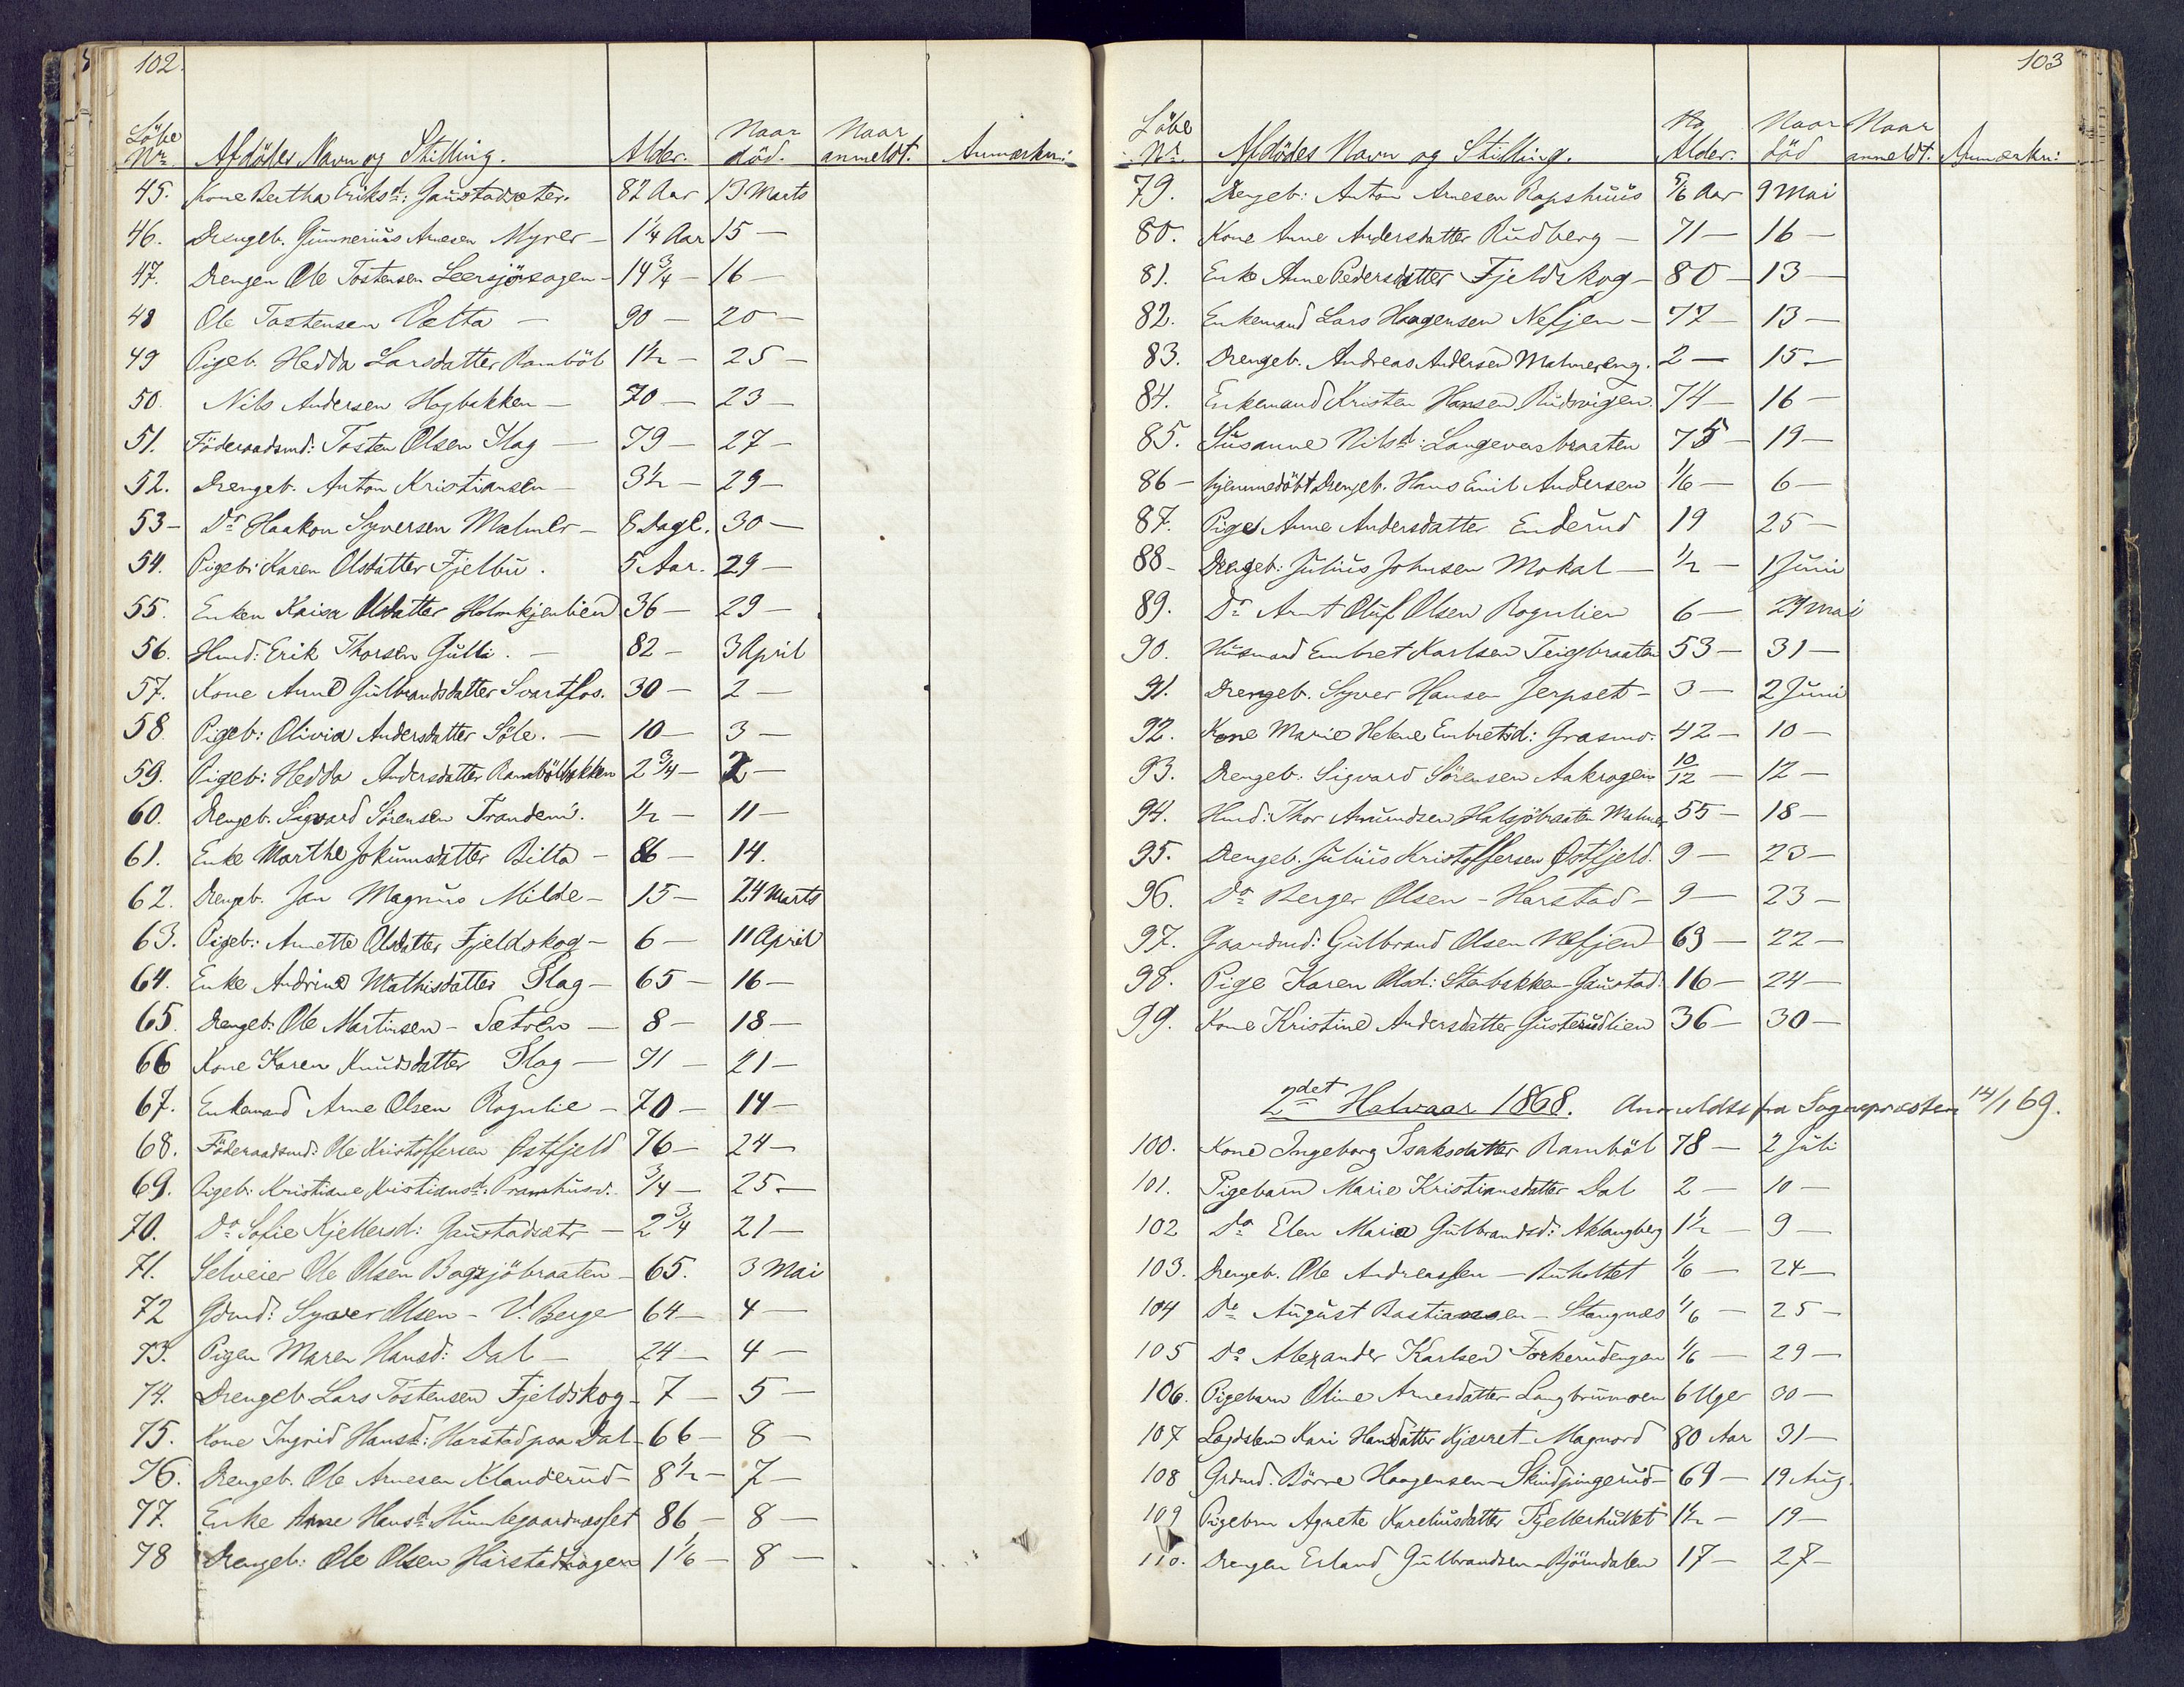 102.
Löbe Nr. Afdödes Navn og Stilling. Alder. Naar död. Naar anmeldt. Anmærkn:
45. Kone Bertha Eriksd: Gaustadsæter. 82 Aar 13 Marts
46. Drengeb. Gunnerius Arnesen Myrer — 1 1/4 Aar 15 —
47. Drengen Ole Tostensen Leersjöhagen — 14 3/4 — 16 —
48 Ole Tostensen Vetta — 90 — 20 —
49 Pigeb. Hedda Larsdatter Ramböl 1 1/2 — 25 —
50. Nils Andersen Hogbakken — 70 — 23 —
51. Föderaadsmd: Tosten Olsen Flag — 79 — 27 —
52. Drengeb. Anton Kristiansen — 3 1/2 — 29 —
53 — Do Haakon Syversen Malmer — 8 Dage. 30 —
54. Pigeb: Karen Olsdatter Fjelbu. 5 Aar. 29 —
55. Enken Kaisa Olsdatter Holmkjenlien 36 — 29 —
56. Hmd: Erik Thorsen Gulli. — 82 — 3 April
57. Kone Anne Gulbrandsdatter Svartfos. 30 — 2 —
58. Pigeb: Olivia Andersdatter Söle. — 10 — 3 —
59. Pigeb: Hedda Andersdatter Rambölbakken 2 3/4 — 2 —
60. Drengeb. Sigvard Sörensen Trandem. 1/2 — 11 —
61. Enke Marthe Jokumsdatter Bilta — 86 — 14.
62. Drengeb. Jan Magnus Milde — 15 — 24 Marts
63. Pigeb: Annette Olsdatter Fjeldskog — 6 — 11 April
64. Enke Andrine Mathisdatter Flag — 65 — 16 —
65. Drengeb: Ole Martinsen — Sætren — 8 — 18 —
66 Kone Karen Knudsdatter Flag — 71 — 21 —
67. Enkemand Arne Olsen Rogulie — 70 — 14 —
68. Föderaadsmd: Ole Kristoffersen Østfjeld 76 — 24 —
69. Pigeb: Kristiane Kristiansd: Pramhusv. 3/4 — 25 —
70. Do Sofie Kjellersd: Gaustadsætr — 2 3/4 21 —
71. Selveier Ole Olsen Bogsjöbraaten — 65. 3 Mai
72 Gdmd: Syver Olsen — V. Berge 64 — 4 —
73. Pigen Maren Hansd: Dal — 24 — 4 —
74. Drengeb Lars Tostensen Fjeldskog — 7 — 5 —
75. Kone Ingrid Hansd: Harstad paa Dal — 66 — 8 —
76. Drengeb. Ole Arnesen Klanderud — 8 1/2 — 7 —
77. Enke Anne Hansd: Humlegaardnæsset 86 — 8 —
78 Drengeb: Ole Olsen Harstadhagen 1 1/6 — 8 —
103
Löbe Nr. Afdödes Navn og Stilling. Alder. Naar död Naar anmeldt. Anmærkn:
79. Drengeb: Anton Arnesen Rapshuus 5/6 Aar 9 Mai
80. Kone Anne Andersdatter Rudberg — 71 — 16 —
81. Enke Anne Pedersdatter Fjeldskog — 80 — 13 —
82. Enkemand Lars Haagensen Nefjen — 77 — 13 —
83. Drengeb. Andreas Andersen Malmereng. 2 — 15 —
84. Enkemand Kristen Hansen Rudsvigen. 74 — 16 —
85. Susanne Nilsd: Langeversbraaten 75 — 19 —
86 — hjemmedöbt Drengeb. Hans Emil Andersen 1/6 — 6 —
87. Pige Anne Andersdatter Enderud 19 25 —
88 — Drengeb: Julius Johnsen Mokal — 1/2 — 1 Juni
89. Do Arnt Oluf Olsen Rogulien 6 — 29 Mai
90. Husmand Embret Karlsen Teigbraaten 53 — 31 —
91. Drengeb. Syver Hansen Jerpset — 3 — 2 Juni
92. Kone Marie Helene Embretsd: Grasmo. 42 — 10 —
93. Drengeb. Sigvard Sörensen Aakrogen 10/12 — 12 —
94. Hmd: Thor Amundsen Halsjöbraaten Malmer 55 — 18 —
95. Drengeb. Julius Kristoffersen Østfjeld. 9 — 23 —
96. Do Berger Olsen — Harstad — 9 — 23 —
97. Gaardmd: Gulbrand Olsen Nefjen 63 — 22 —
98. Pige Karen Olsd: Stenbakken — Gaustad. 16 — 24 —
99. Kone Kristine Andersdatter Gusterudlien 36 — 30 —
2det Halvaar 1868. Anmeldt fra Sognepræsten 14/1 69.
100. Kone Ingeborg Isaksdatter Ramböl 78 — 2 Juli
101. Pigebarn Marie Kristiansdatter Dal 2 — 10 —
102 Do Elen Maria Gulbrandsd: Aklangberg 1 1/2 — 9 —
103. Drengeb. Ole Andreassen — Ruholtet 1/6 — 24 —
104 Do August Bastiansen — Stangnæs 1/6 — 25 —
105 Do Alexander Karlsen Forkerudengen 1/6 — 29 —
106. Pigebarn Oline Arnesdatter Langbrunmoen 6 Uger 30 —
107 Lægdslem Kari Hansdatter Kjærret — Magnord 80 Aar 31 —
108 Grdmd. Börre Haagensen — Skindpungerud — 69 — 19 Aug.
109 Pigebrn Agnete Kareliusdatter Fjellerhultet 1 1/2 — 19 —
110. Drengen Erland Gulbrandsen — Björndalen 17 — 27 —